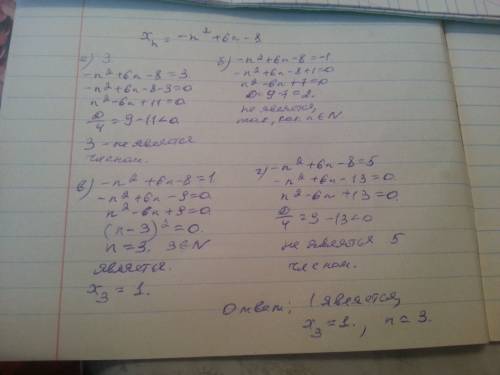 xₙ = -n² + 6n - 8
а) 3
-n² + 6n - 8 = 3
-n² + 6n - 8 - 3 = 0
n² - 6n + 11 = 0
D/4 = 9 - 11 < 0
3 - не является
членом.
б) -n² + 6n - 8 = -1
-n² + 6n - 8 + 1 = 0
n² - 6n + 7 = 0
D = 9 - 7 = 2.
не является,
так, как n ∈ N
в) -n² + 6n - 8 = 1
-n² + 6n - 9 = 0
n² - 6n + 9 = 0
(n - 3)² = 0
n = 3. 3 ∈ N
является.
x₃ = 1.
г) -n² + 6n - 8 = 5
-n² + 6n - 13 = 0
n² - 6n + 13 = 0
D/4 = 9 - 13 < 0
не является 5
членом.
Ответ: 1 является,
x₃ = 1. , n = 3.